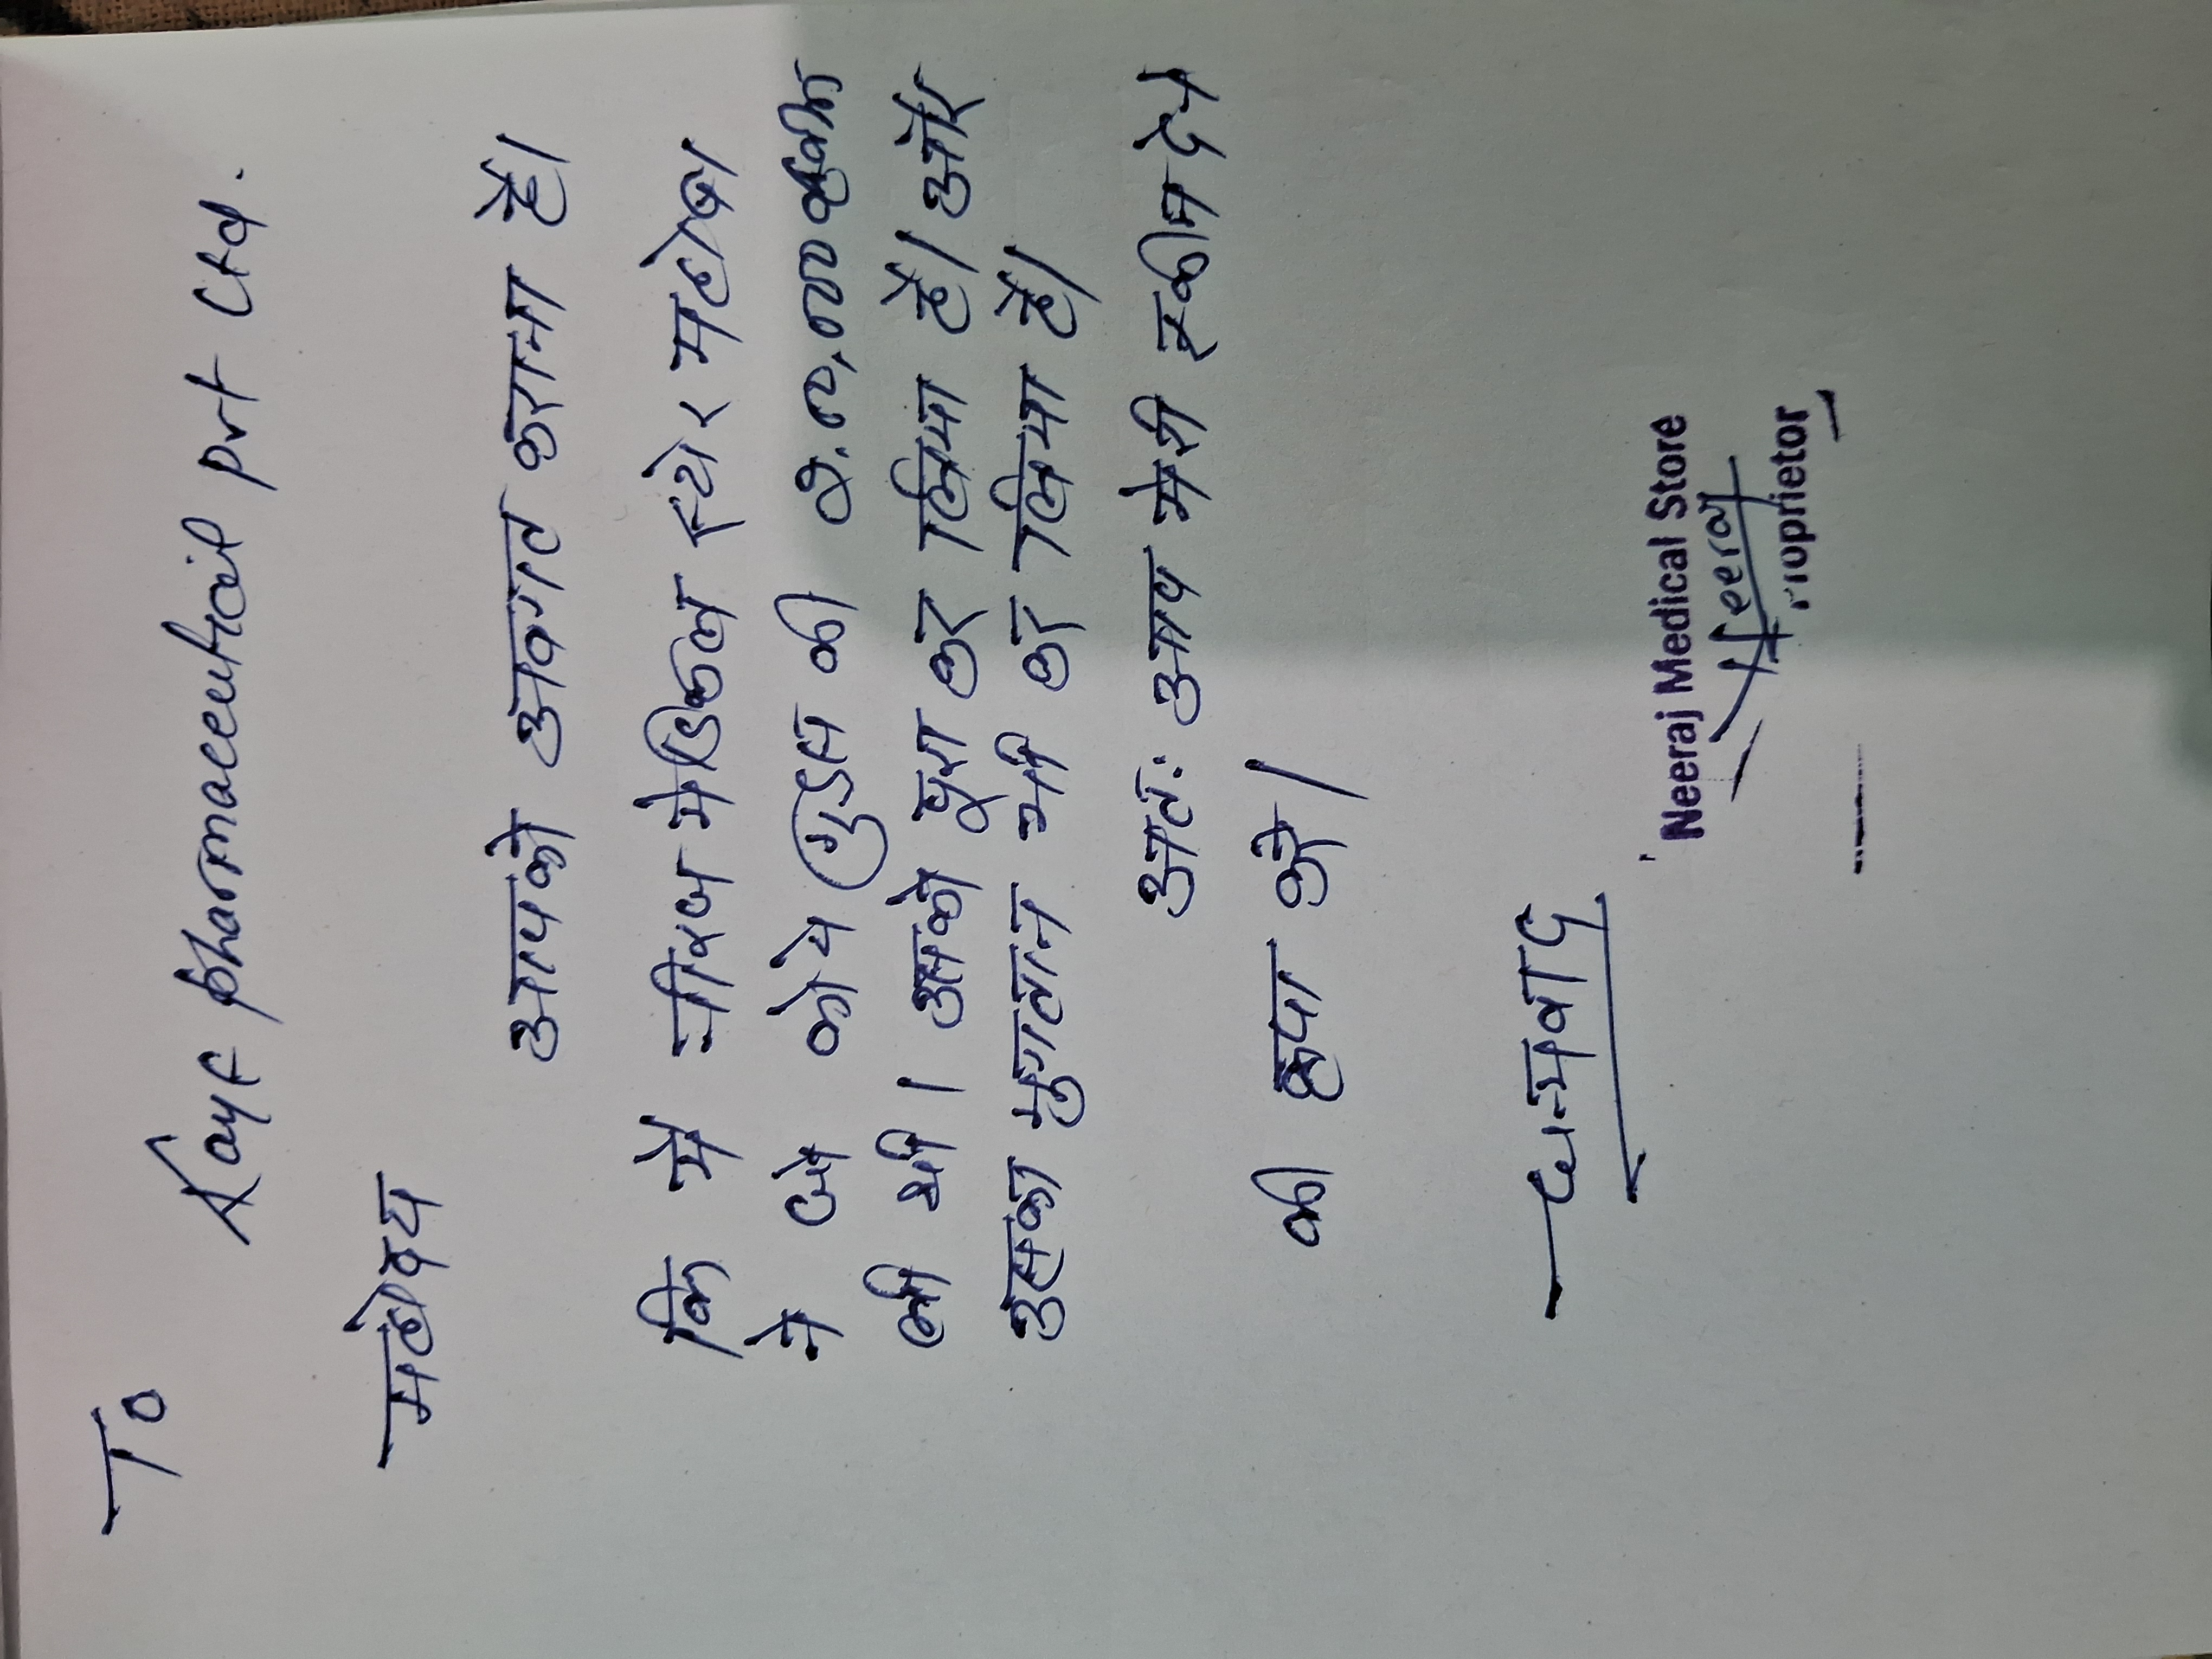 To
Kayf pharmaceutical pvt Ltd.
महोदय
आपको अवगत कराना है।
कि मे नीरज मेडिकल स्टोर महोबा
ने जो कोये गुडस की
ली थी। उसको पूरा कर लिया है। और
उसका भुगतान भी कर दिया है।
अतः आप मेरी स्कीम देने
की कृपा करे।
धन्यवाद
Neeraj Medical Store
Neeraj
Proprietor